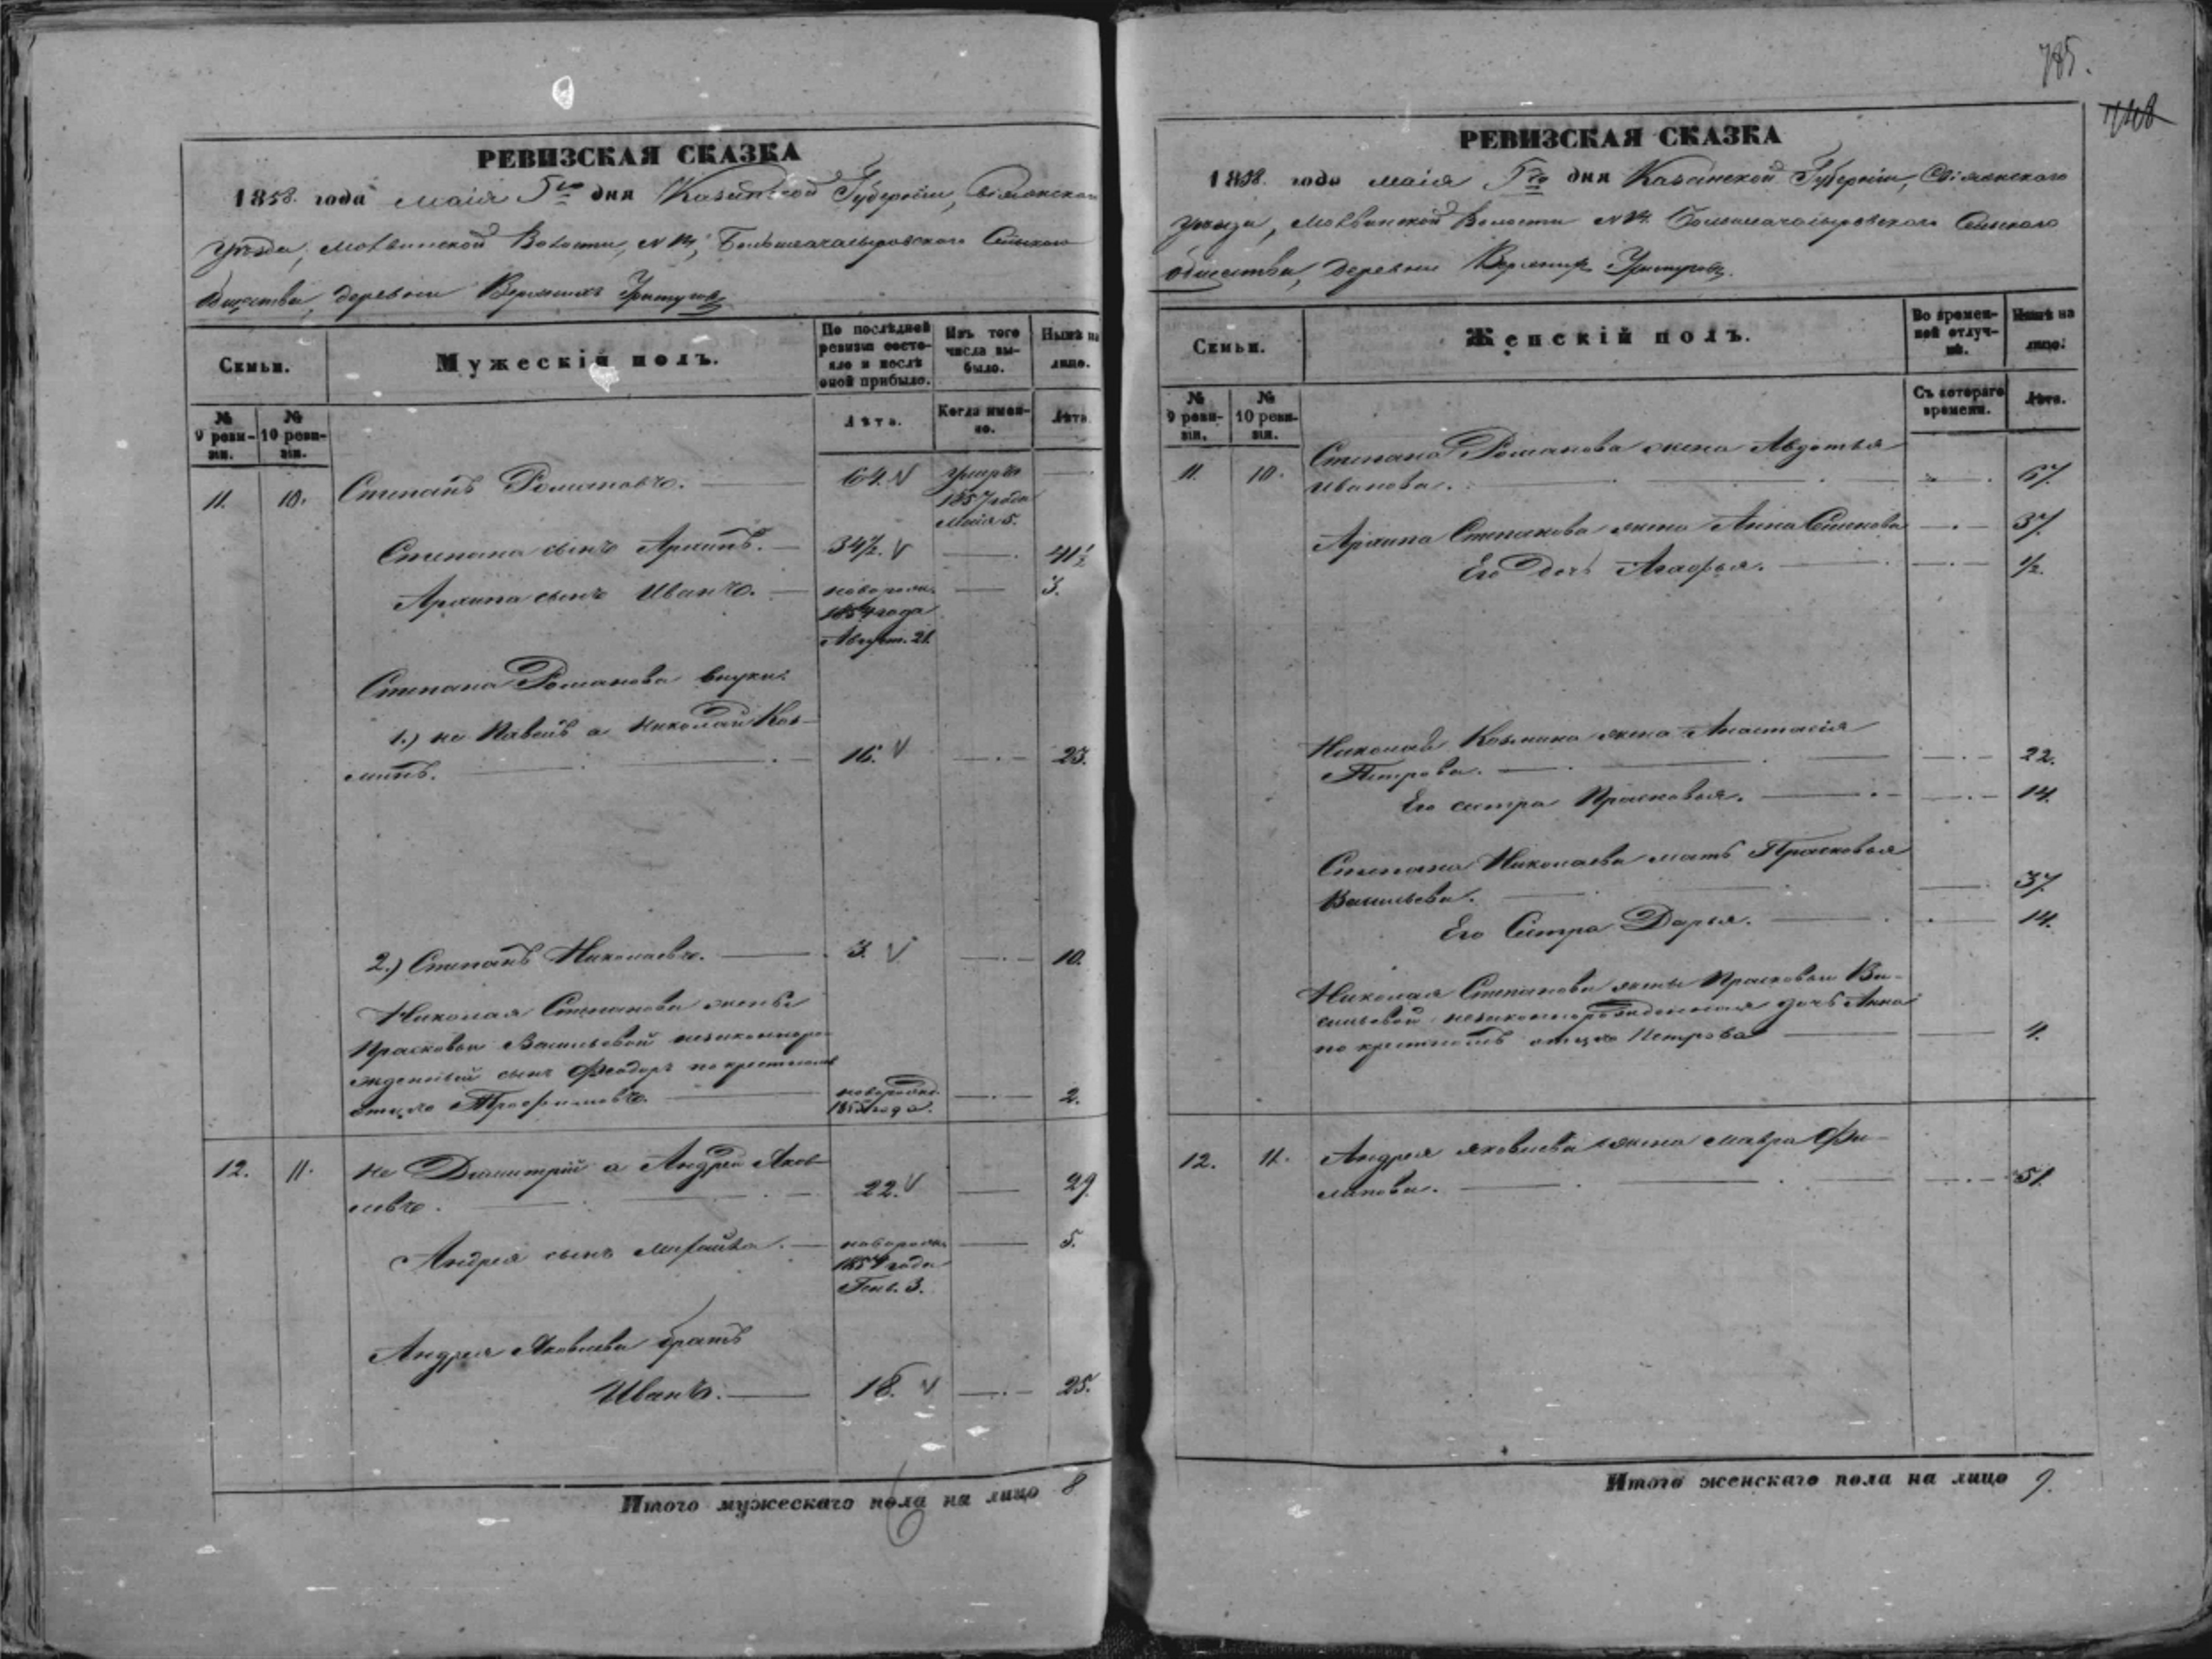 785.
РЕВИЗСКАЯ СКАЗКА
1858. года маія 5го дня Казанской Губерніи, Свіяжскаго
уѣзда, Молвинской Волости, Сельскаго
общества, деревни Верхнихъ
Семьи.
Мужескій полъ.
По послѣдней ревизіи состо-
яло и послѣ оной прибыло.
Изъ того числа вы-
было.
Нынѣ на лицо.
№ 9 реви-
зіи.
№ 10 реви-
зіи.
Лѣта.
Когда имен-
но.
Лѣта.
11. 10. Степанъ Романовъ. 64. умеръ
1857 года
Маія 5.
Степана сынъ Архипъ. 34½. 41½
Архипа сынъ Иванъ. новорожд. 3.
1854 года
Август. 21.
Степана Романова внуки:
1.) не Павелъ а Николай Коз-
минъ. 16. 23.
2.) Степанъ Николаевъ. 3. 10.
Николая Степанова жены
Прасковьи Васильевой незаконноро-
жденный сынъ Ѳеодоръ по крестному
отцу Трофимовъ. новорожд. 2.
1855 года.
12. 11. не Димитрій а Андрей Яков-
левъ. 22. 29.
Андрея сынъ Михайла. новорожд. 5.
1854 года
Генв. 3.
Андрея Яковлева братъ
Иванъ. 18. 25.
Итого мужескаго пола на лицо 8
РЕВИЗСКАЯ СКАЗКА
1858. года маія 5го дня Казанской Губерніи, Свіяжскаго
уѣзда, Молвинской Волости Сельскаго
общества, деревни Верхнихъ
Семьи.
Женскій полъ.
Во времен-
ной отлуч-
кѣ.
Нынѣ на
лицо.
№ 9 реви-
зіи.
№ 10 реви-
зіи.
Съ котораго
времени.
Лѣта.
11. 10. Степана Романова жена Авдотья
Иванова. 67.
Архипа Степанова жена Анна Семенова 37.
Его дочь Агафья. ½.
Николая Козмина жена Анастасія
Петрова. 22.
Его сестра Прасковья. 14.
Степана Николаева мать Прасковья
Васильева. 37.
Его Сестра Дарья. 14.
Николая Степанова жены Прасковьи Ва-
сильевой незаконнорожденная дочь Анна
по крестномъ отцѣ Петрова 4.
12. 11. Андрея Яковлева жена Мавра Фи-
липова. 31.
Итого женскаго пола на лицо 9.